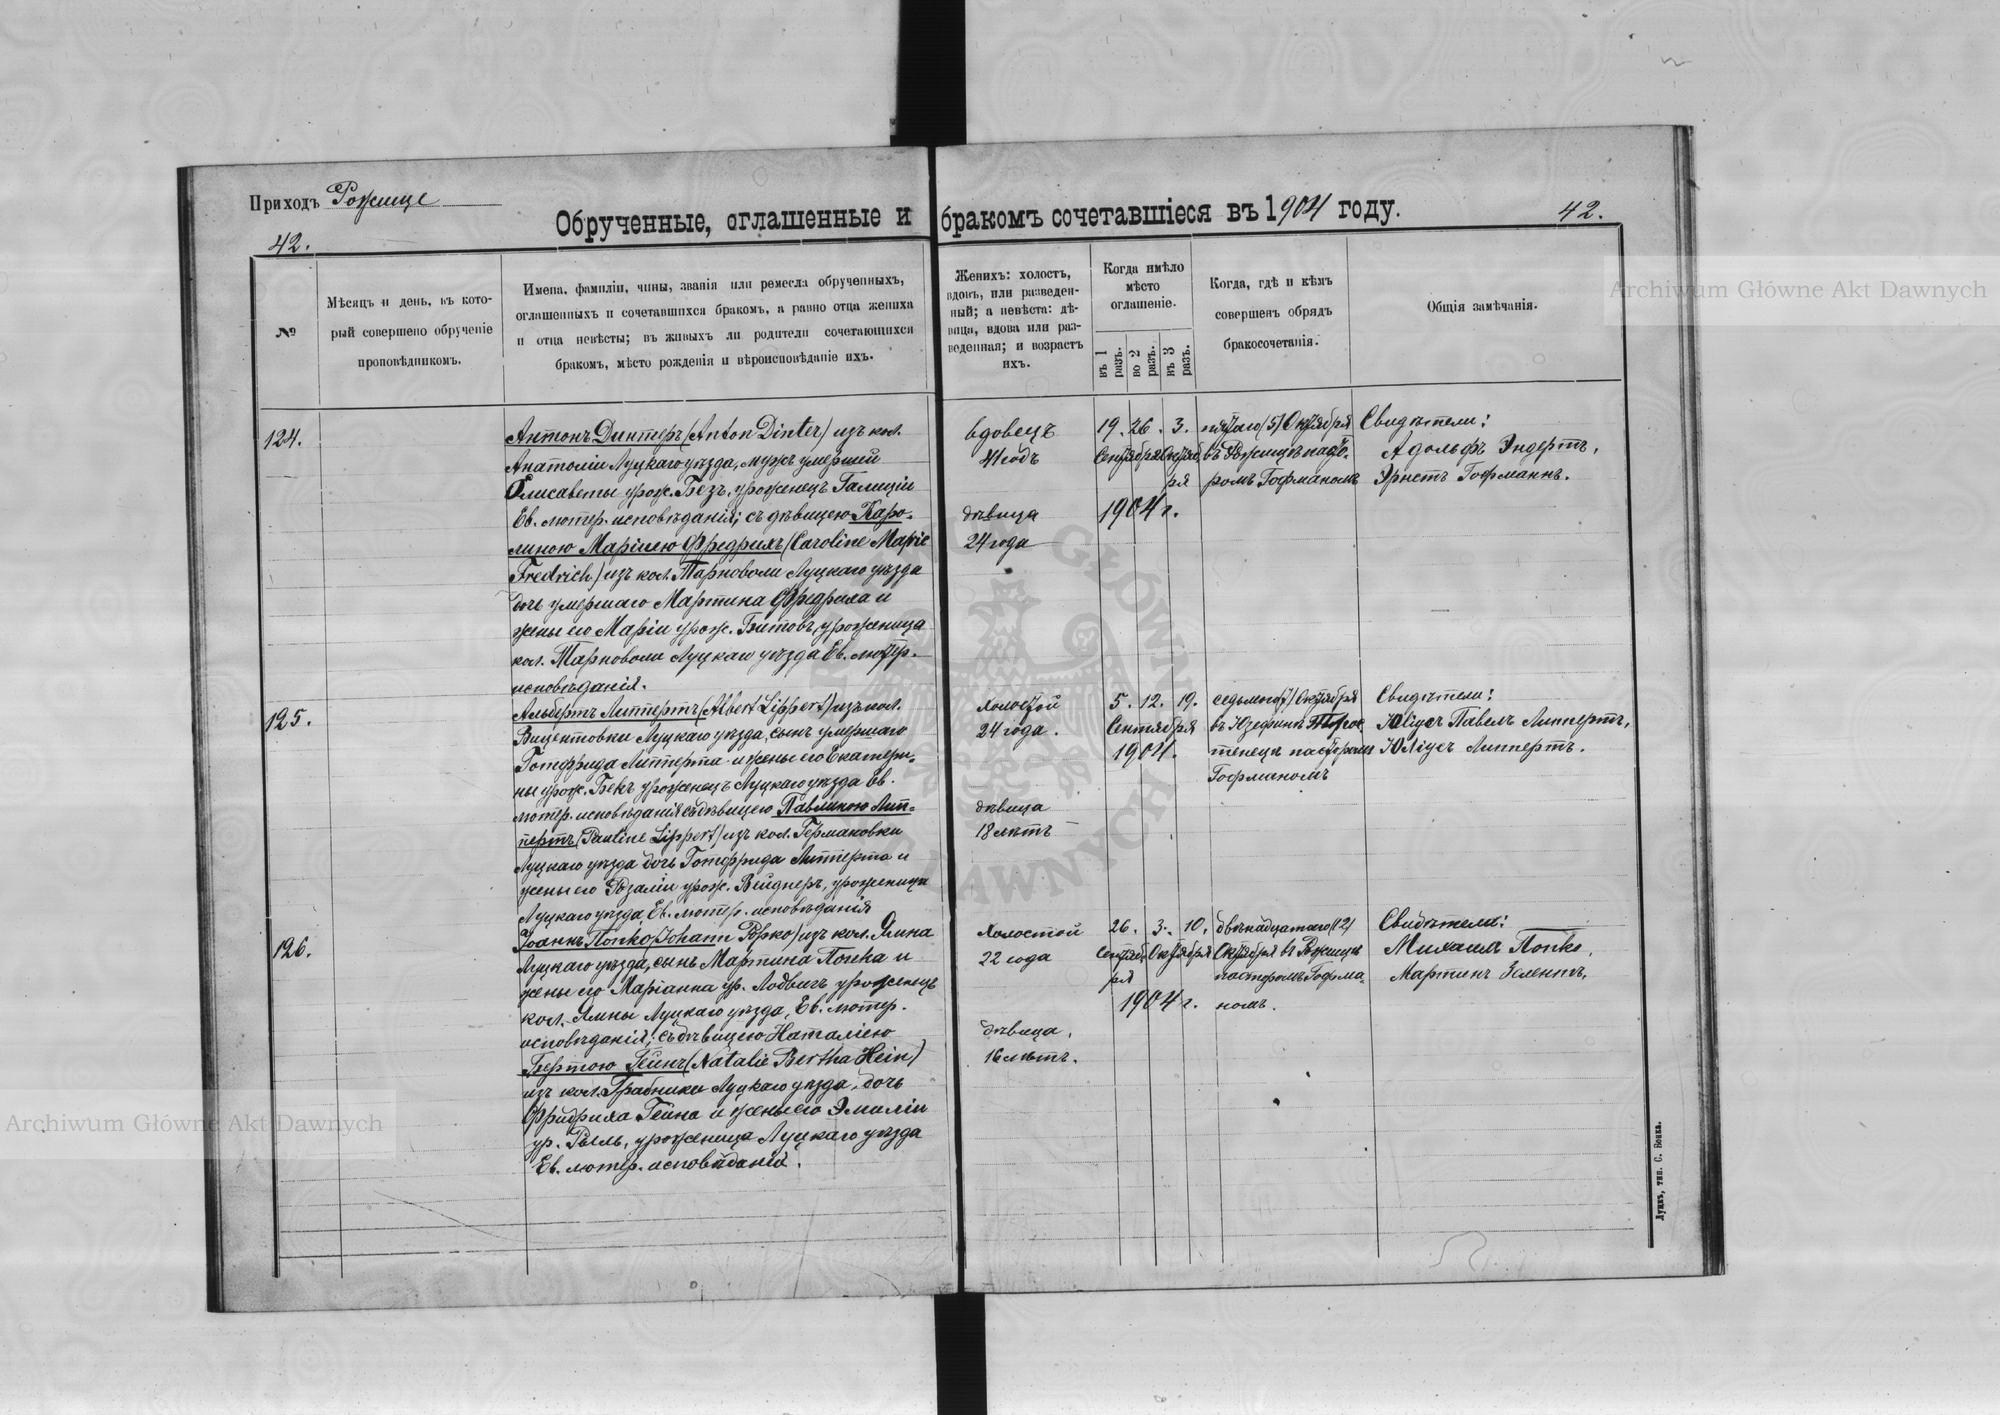 Приходъ Рожище
Обрученные, оглашенные и бракомъ сочетавшіеся въ 1904 году.
42.
42.
№
Мѣсяцъ и день, въ кото-
рый совершено обрученіе
проповѣдникомъ.
Имена, фамиліи, чины, званія или ремесла обрученныхъ,
оглашенныхъ и сочетавшихся бракомъ, а равно отца жениха
и отца невѣсты; въ живыхъ ли родители сочетающихся
бракомъ, мѣсто рожденія и вѣроисповѣданіе ихъ.
Женихъ: холостъ,
вдовъ, или разведен-
ный; а невѣста: дѣ-
вица, вдова или раз-
веденная; и возрастъ
ихъ.
Когда имѣло
мѣсто
оглашеніе.
въ 1
разъ.
во 2
разъ.
въ 3
разъ.
Когда, гдѣ и кѣмъ
совершенъ обрядъ
бракосочетанія.
Общія замѣчанія.
124.
Антонъ Динтеръ (Anton Dinter) изъ кол.
Анатоліи Луцкаго уѣзда, мужъ умершей
Елисаветы урож. Безъ, уроженецъ Галиціи
Ев. лютер. исповѣданія; съ дѣвицею Каро-
линою Маріею Фредрихъ (Caroline Marie
Fredrich) изъ кол. Тарноволи Луцкаго уѣзда
дочь умершаго Мартина Фредриха и
жены его Маріи урож. Битовъ, уроженица
кол. Тарноволи Луцкаго уѣзда Ев. лютер.
исповѣданія.
вдовецъ
41 годъ
дѣвица
24 года
19. 26. 3.
Сентября Октяб-
ря
1904 г.
пятаго (5) Октября
въ Рожищѣ пасто-
ромъ Гофманомъ
Свидѣтели:
Адольфъ Эндертъ,
Эрнстъ Гофманнъ.
125.
Альбертъ Липпертъ (Albert Lippert) изъ кол.
Вицентовки Луцкаго уѣзда, сынъ умершаго
Готфрида Липперта и жены его Екатери-
ны урож. Бекъ уроженецъ Луцкаго уѣзда Ев.
лютер. исповѣданія съ дѣвицею Павлиною Лип-
пертъ (Pauline Lippert) изъ кол. Германовки
Луцкаго уѣзда дочь Готфрида Липперта и
жены его Розаліи урож. Вейднеръ, уроженица
Луцкаго уѣзда, Ев. лютер. исповѣданія
Холостой
24 года.
дѣвица
18 лѣтъ
5. 12. 19.
Сентября
1904.
седьмого (7) Октября
въ Юзефинѣ
пасторомъ
Гофманомъ
Свидѣтели:
Павелъ Липпертъ,
Юліусъ Липпертъ.
126.
Іоаннъ Попко (Johann Popko) изъ кол. Ямна
Луцкаго уѣзда, сынъ Мартина Попка и
жены его Маріанна ур. Лодвигъ уроженецъ
кол. Ямны Луцкаго уѣзда, Ев. лютер.
исповѣданія; съ дѣвицею Наталіею
Бертою Гейнъ (Natalie Bertha Hein)
изъ кол. Грабники Луцкаго уѣзда, дочь
Фридриха Гейна и жены его Эмиліи
ур. Рыль, уроженица Луцкаго уѣзда
Ев. лютер. исповѣданія.
Холостой
22 года
дѣвица,
16 лѣтъ.
26. 3. 10.
Сентяб- Октября
ря
1904 г.
двѣнадцатаго (12)
Октября въ Рожищѣ
пасторомъ Гофма-
номъ.
Свидѣтели:
Михаилъ Попко,
Мартинъ Зелентъ.
Луцкъ, тип. С. Бонка.
Archiwum Główne Akt Dawnych
Archiwum Główne Akt Dawnych